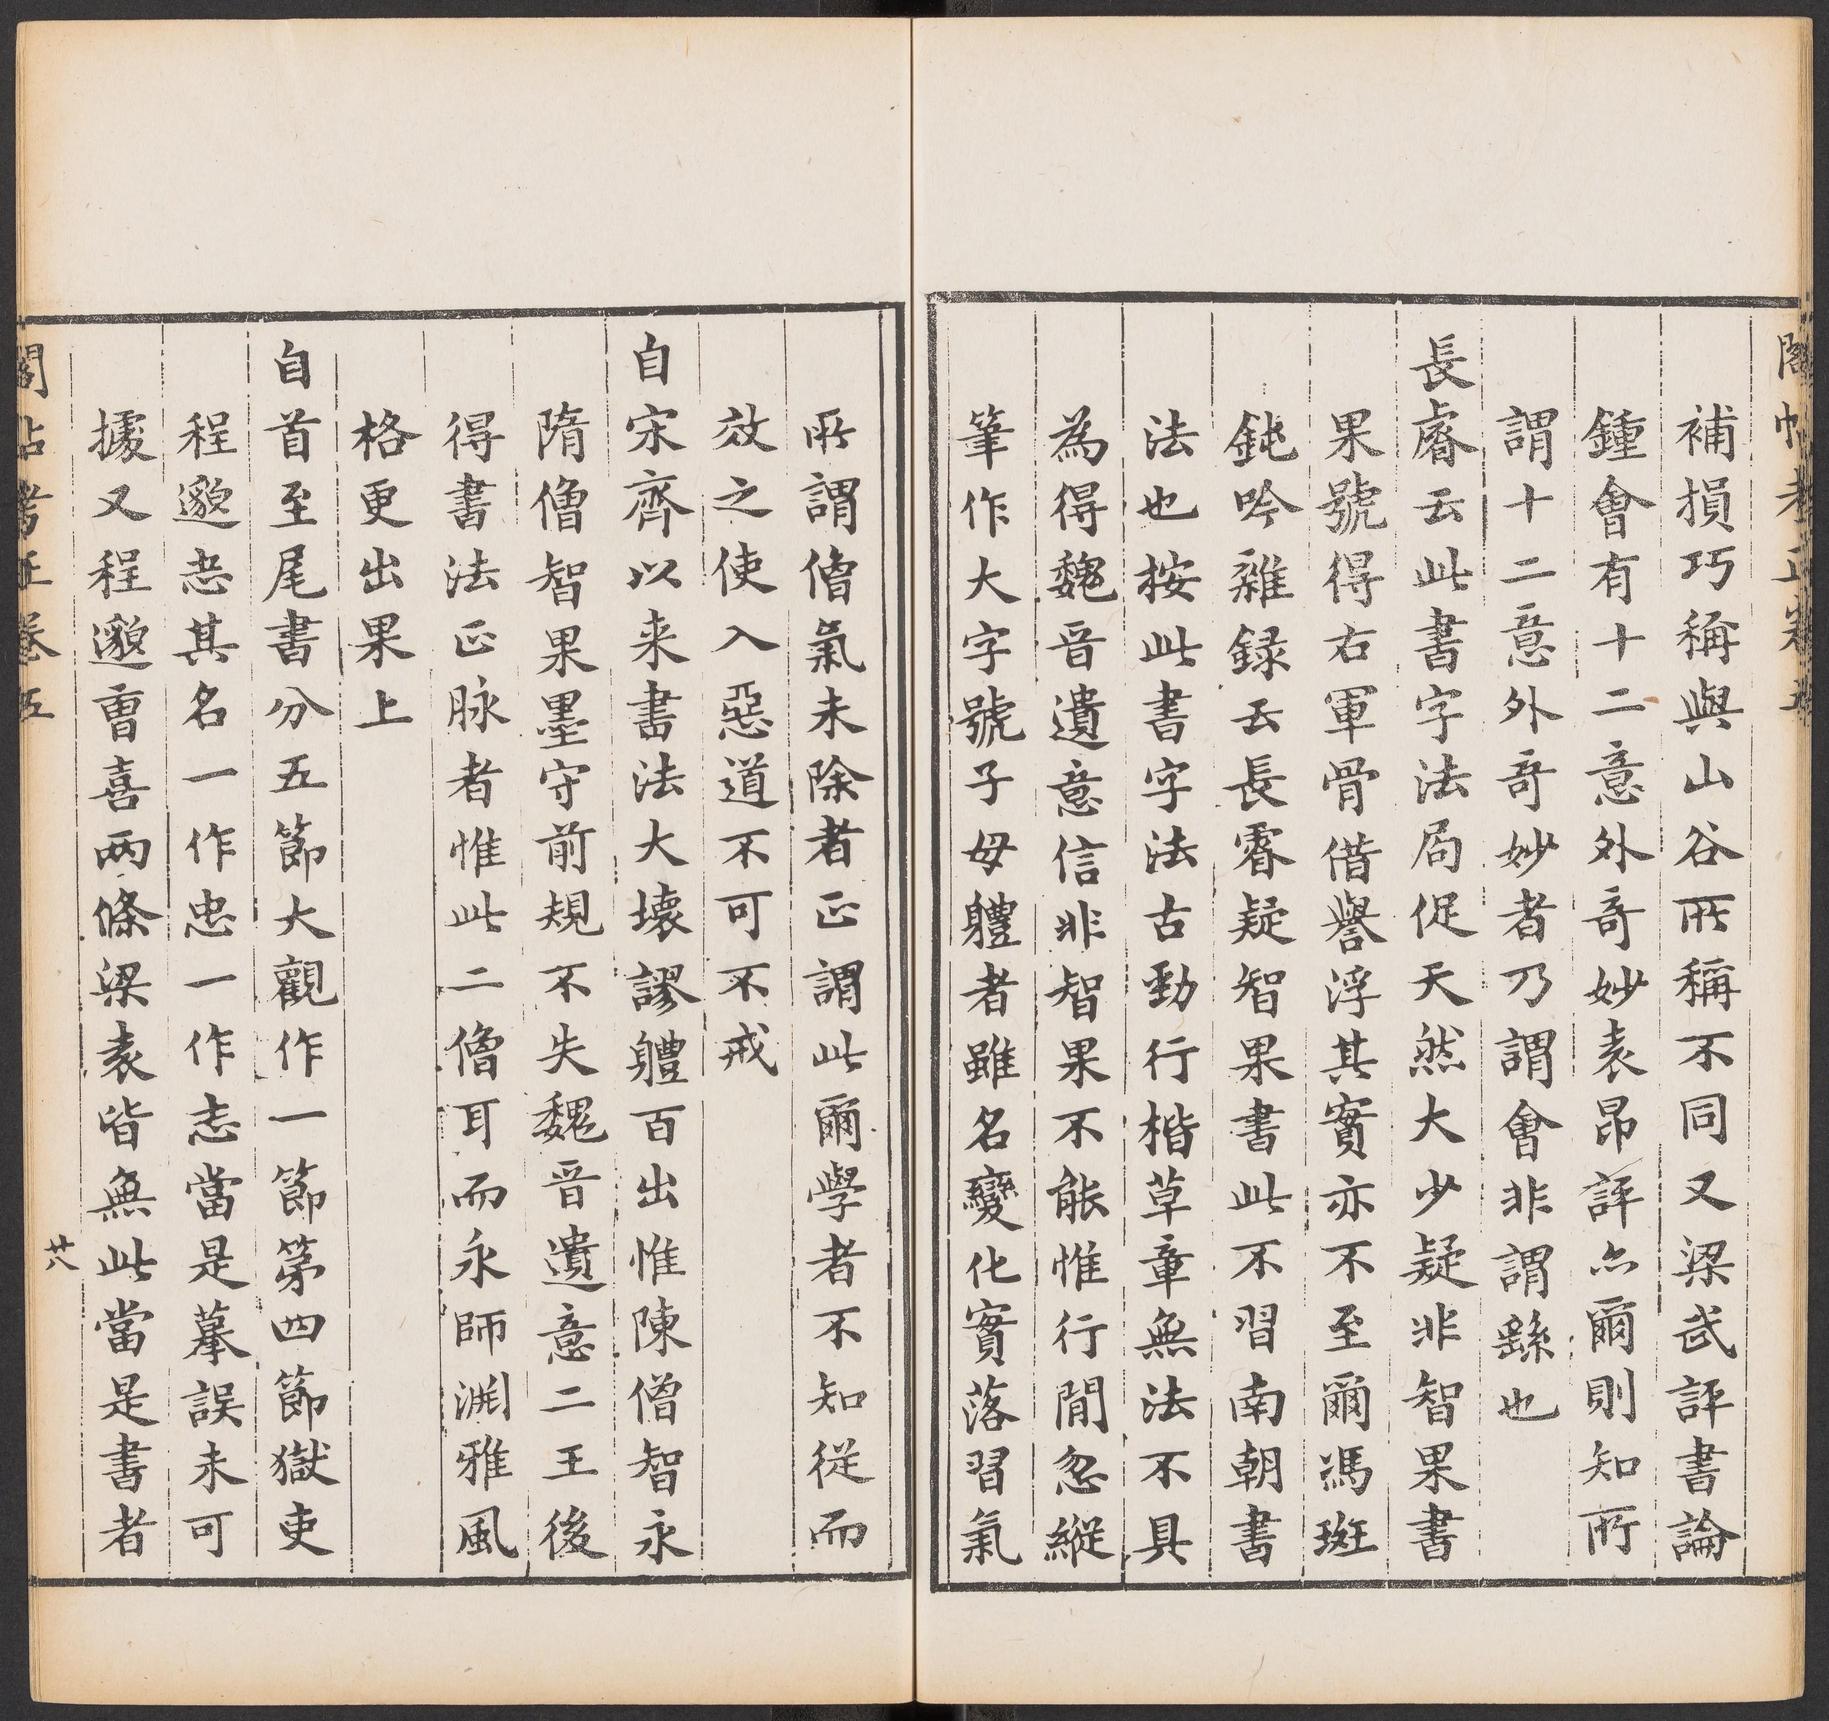 閣帖考正卷五
補損巧稱與山谷所稱不同又梁武評書論
鍾會有十二意外奇妙袁昂評亦爾則知所
謂十二意外奇妙者乃謂會非謂繇也
長睿云此書字法局促天然大少疑非智果書
果號得右軍骨借譽浮其實亦不至爾馮班
鈍吟雜録云長睿疑智果書此不習南朝書
法也按此書字法古勁行楷草章無法不具
為得魏晉遺意信非智果不能惟行間忽縱
筆作大字號子母軆者雖名變化實落習氣
所謂僧氣未除者正謂此爾學者不知從而
效之使入惡道不可不戒
自宋齊以来書法大壞謬軆百出惟陳僧智永
隋僧智果墨守前規不失魏晉遺意二王後
得書法正脉者惟此二僧耳而永師淵雅風
格更出果上
自首至尾書分五節大觀作一節第四節獄吏
程邈忘其名一作忠一作志當是摹誤未可
據又程邈曹喜兩條梁袁皆無此當是書者
閣帖考正卷五
廿八